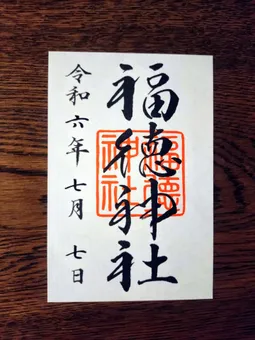 福徳神社
福徳
神社
令和六年 七月 七日